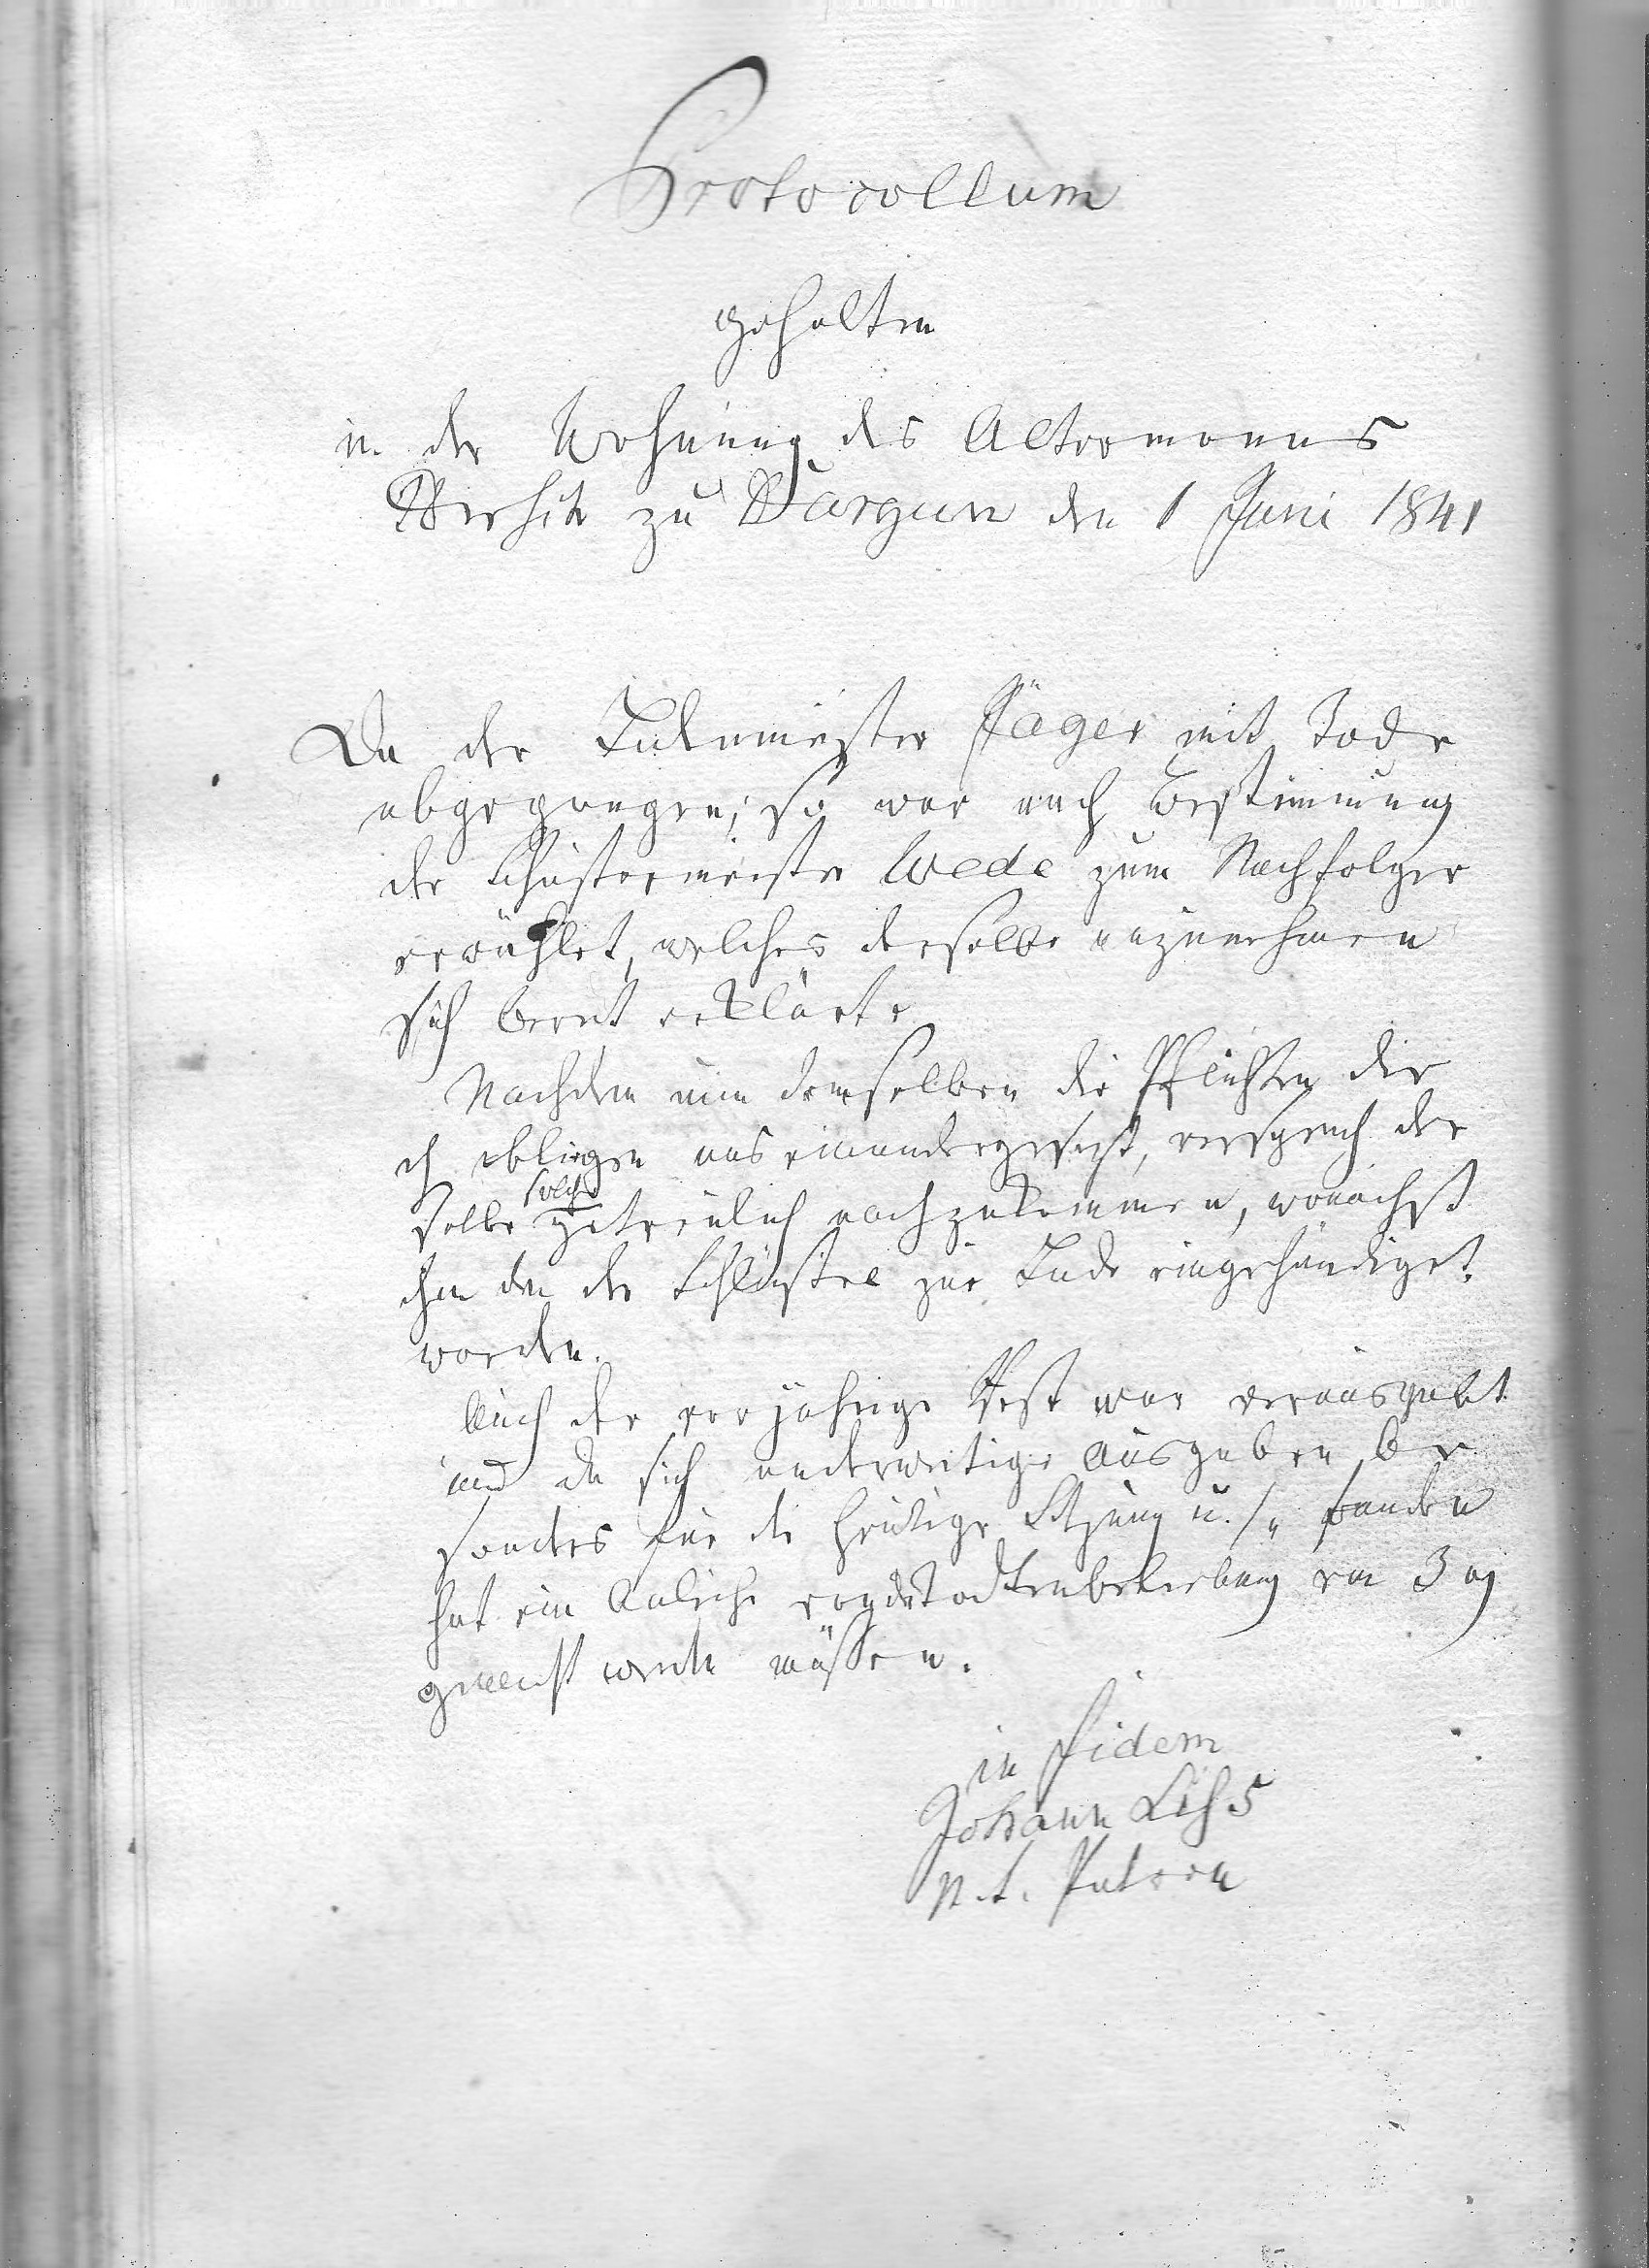 Protocollum
gehalten
in der Wohnung des Altermanns
zu Dargun den 1 Juni 1841
Da der Ladenmeister Jäger mit Tode
abgegangen; so war nach Bestimmung
der Schustermeister Wede zum Nachfolger
erwählet, welches derselbe anzunehmen
sich bereit erklärte
Nachdem nun demselben die Pflichten die
obliegen auseinandergesetzt, versprach der
selbe solche getreulich nachzukommen, wonächst
ihm den der Schlüssel zur Lade eingehändiget
worden.
Auch der vorjährige Rest war verausgabt
und da sich anderweitige Ausgaben be
sonders für die heutige Sitzung u. fanden
hat ein Anleihe von 3
gemacht werden müssen.
in Fidem
Johann
n. t. Patron